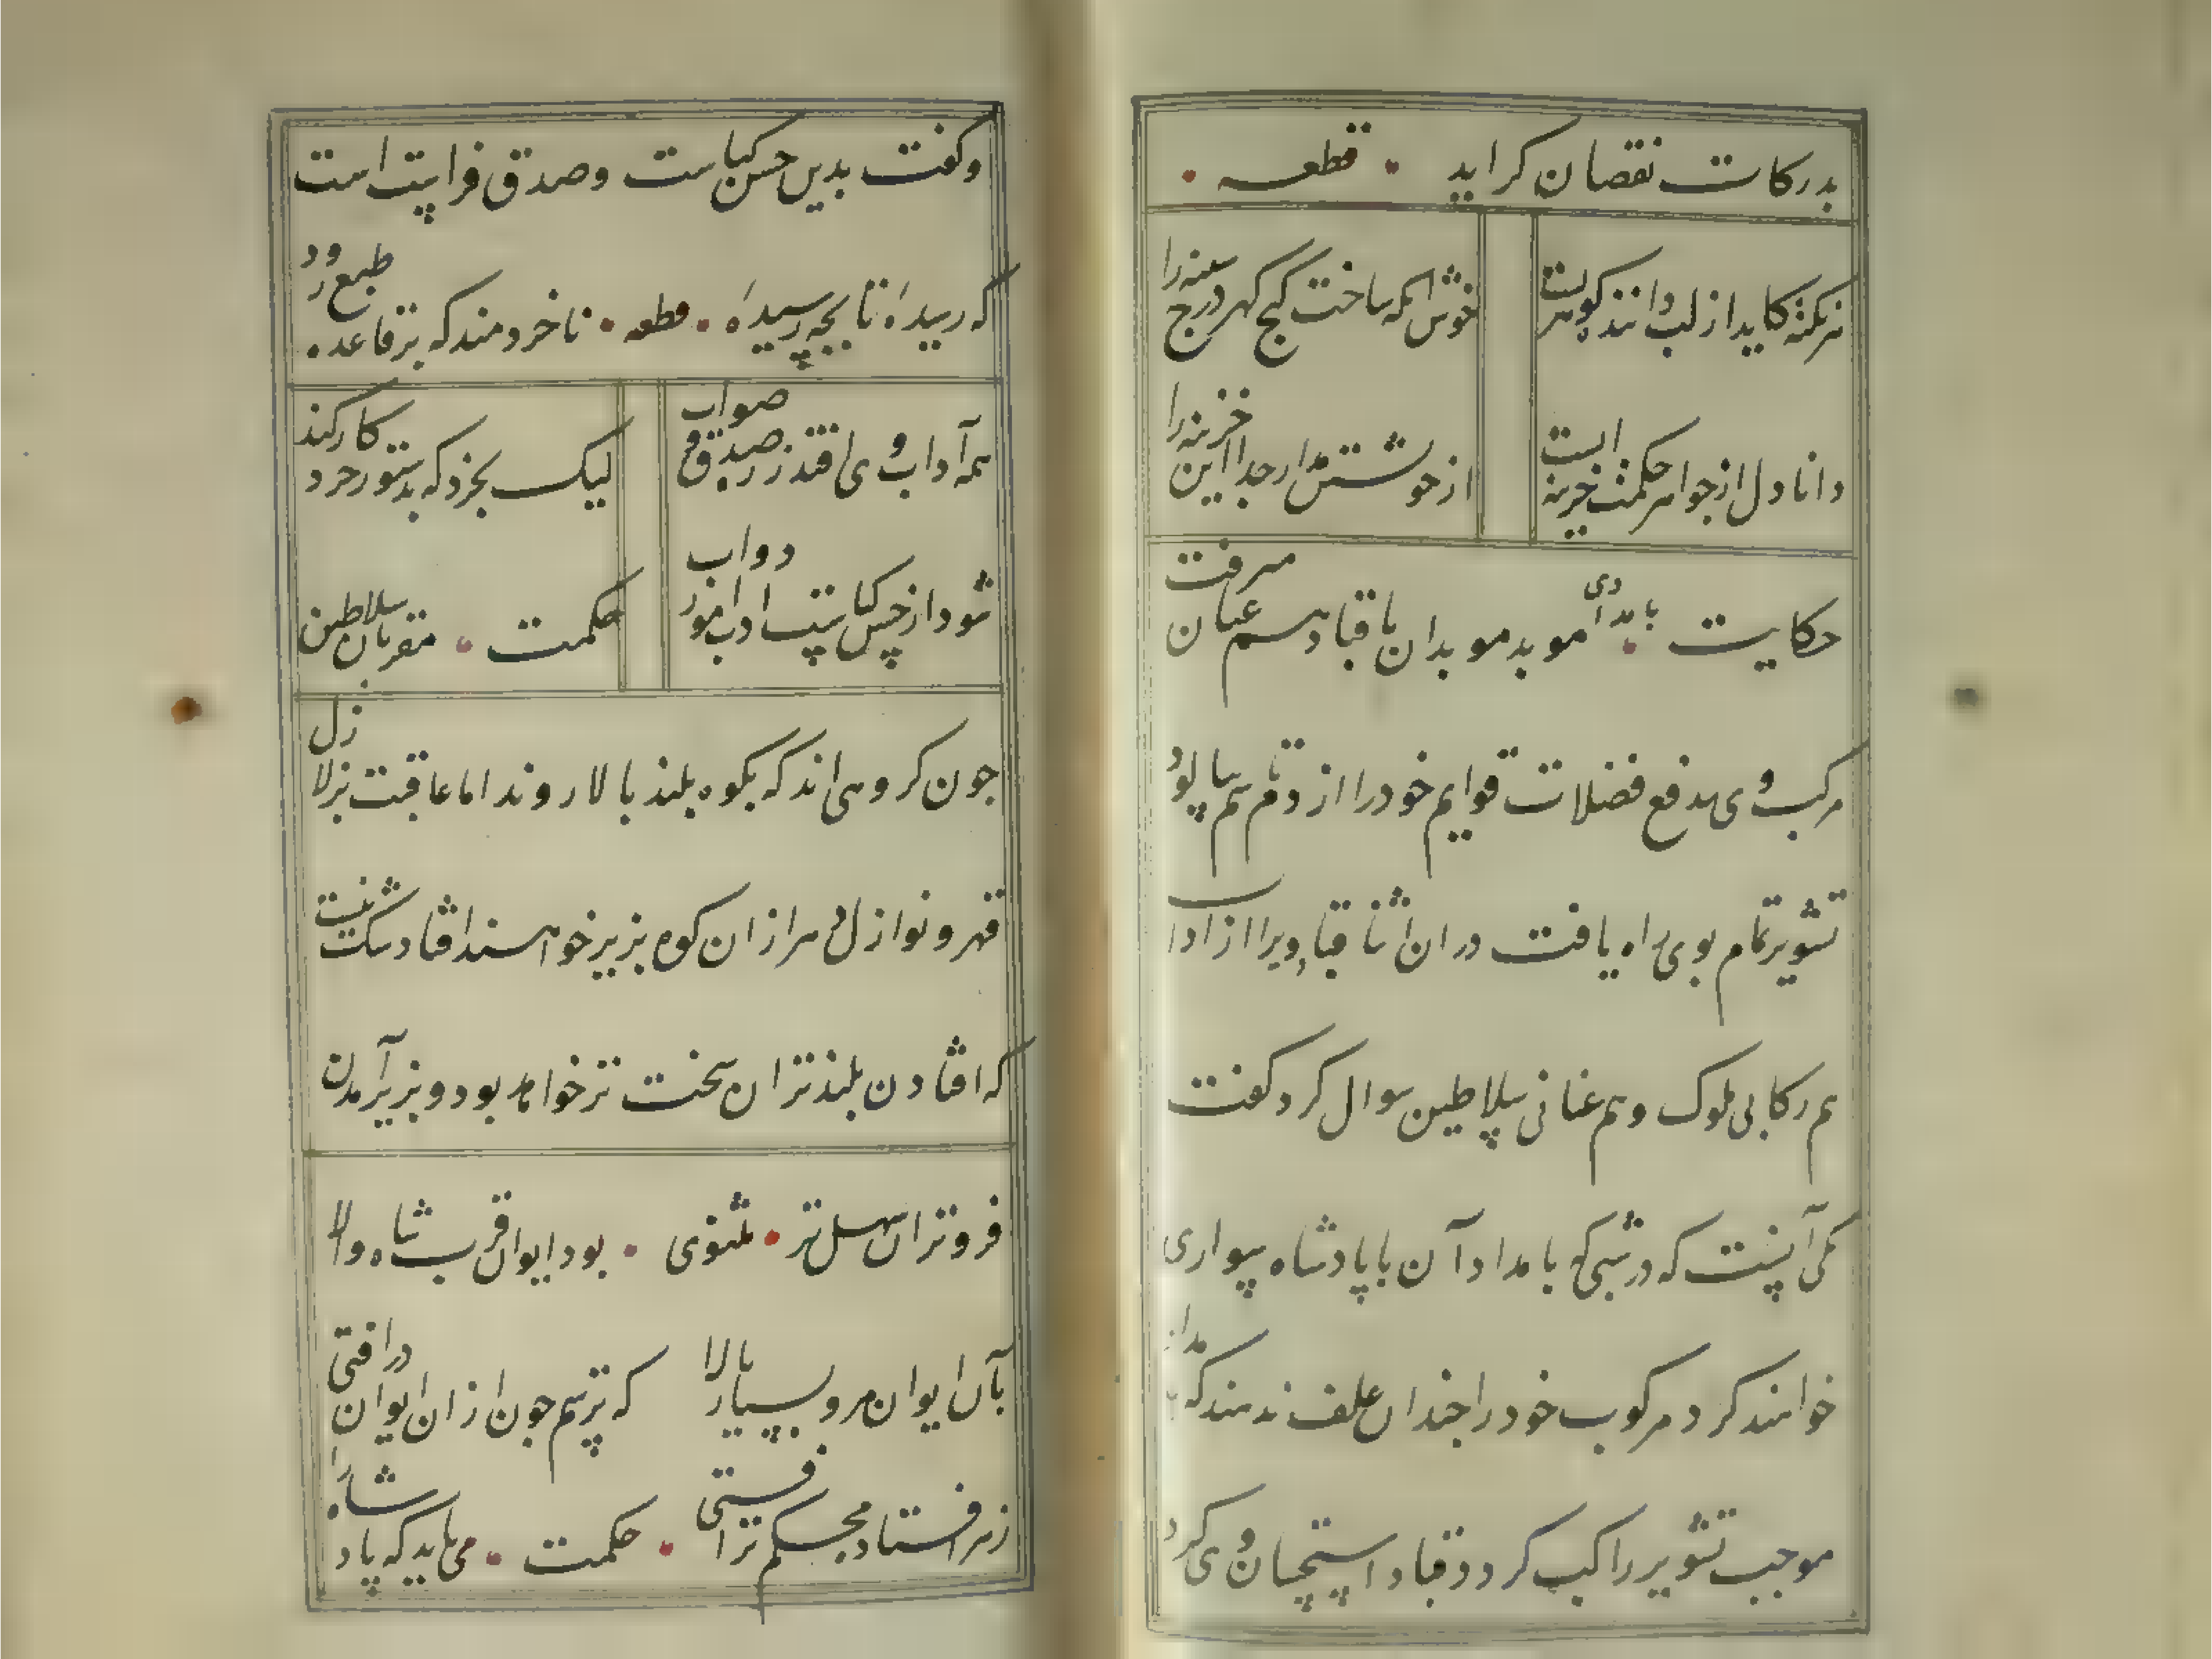 بدرکات نقصان کراید • قطعه •
هر نکته کاید از لب داننده گوهریست
خوش آنکه ساخت گنج گهر درج سینه را
دانا دل از جواهر حکمت خزینه است
از خویشتن مدار جدا این خزینه را
حکایت • بامدادی موبد موبدان با قباد هم عنان میرفت
مرکب وی بدفع فضلات قوایم خود را از دم تا سم بیالود
تشویر تمام بوی راه یافت در ان اثنا قباد ویرا از اداب
هم رکابی ملوک و هم عنانی سلاطین سوال کرد گفت
یکی آنست که در شبی که بامداد آن با پادشاه سواری
خواهند کرد مرکوب خود را چندان علف ندهند که بامداد
موجب تشویر راکب کردد قباد استحسان وی کرد
وکفت بدین حسن کیاست وصدق فراست است
که رسیدهٔ تا بجه رسیدهٔ • قطعه • نا خردمند که بر قاعدهٔ طبع رود
همه آداب وی افتد ز ره صدق و صواب
لیک بخرد که بدستور خرد کار کند
شود از حسن کیاست ادب آموز دواب
حکمت • مقربان سلاطین
جون کروهی اند که بکوه بلند بالا روند اما عاقبت بزلازل
قهر و نوازل دهر از ان کوه بزیر خواهند افتاد شک نیست
که افتادن بلندتران سخت تر خواهد بود و بزیر آمدن
فروتران سهل تر • مثنوی • بود ایوان قرب شاه والا
بآن ایوان مرو بسیار بالا
که ترسم جون از ان ایوان در افتی
ز هر افتاده محکم تر افتی • حکمت • می باید که پادشاه را